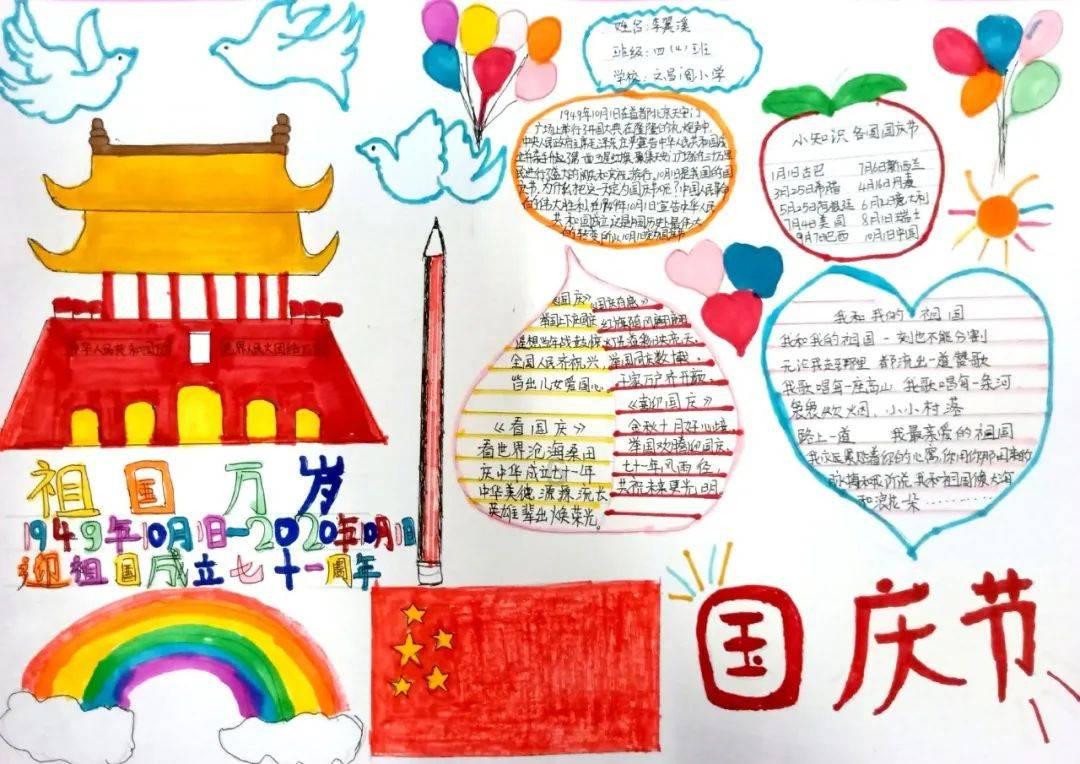 姓名:李翼溪
班级:四(4)班
学校:文昌阁小学
1949年10月1日在首都北京天安门
广场上举行了开国大典在隆隆的礼炮声中
中央人民政府主席毛泽东庄严宣告中华人民共和国成
立并亲手升起了第一面五星红旗。聚集天安门广场的三十万军
民进行了盛大的阅兵和庆祝游行。10月1日是我国的国
庆节,为什么把这一天定为国庆节呢?中国人民革命
的伟大胜利,在1949年10月1日宣告中华人民
共和国成立,这是中国历史上最伟大
的转变 所以10月1日为国庆节
小知识 各国国庆节
1月1日古巴 7月6日新西兰
3月25日希腊 4月16日丹麦
5月25日阿根廷 6月2日意大利
7月4日美国 8月1日瑞士
9月7日巴西 10月1日中国
国庆》
举国上下
全国人民齐祝兴,
皆出儿女爱国心。
《看国庆》
看世界沧海桑田
庆中华成立七十一年
中华美德源源流长
英雄辈出焕荣光。
国庆有感》
红旗随风飘
千家万户齐开颜。
《喜迎国庆》
金秋十月好心情,
举国欢腾迎国庆,
七十一年风雨径,
共祝未来更光明
我和我的祖国
我和我的祖国 一刻也不能分割
无论我走到哪里 都流出一首赞歌
我歌唱每一座高山 我歌唱每一条河
袅袅炊烟,小小村落
路上一道 我最亲爱的祖国
我永远紧贴着你的心窝,你用你那母亲的
脉搏和我诉说 我和祖国像大海
和浪花一朵…………
中华人民共和国万
世界人民大团结万
祖国万岁
1949年10月1日—2020年10月1日
迎祖国成立七十一周年
国庆节